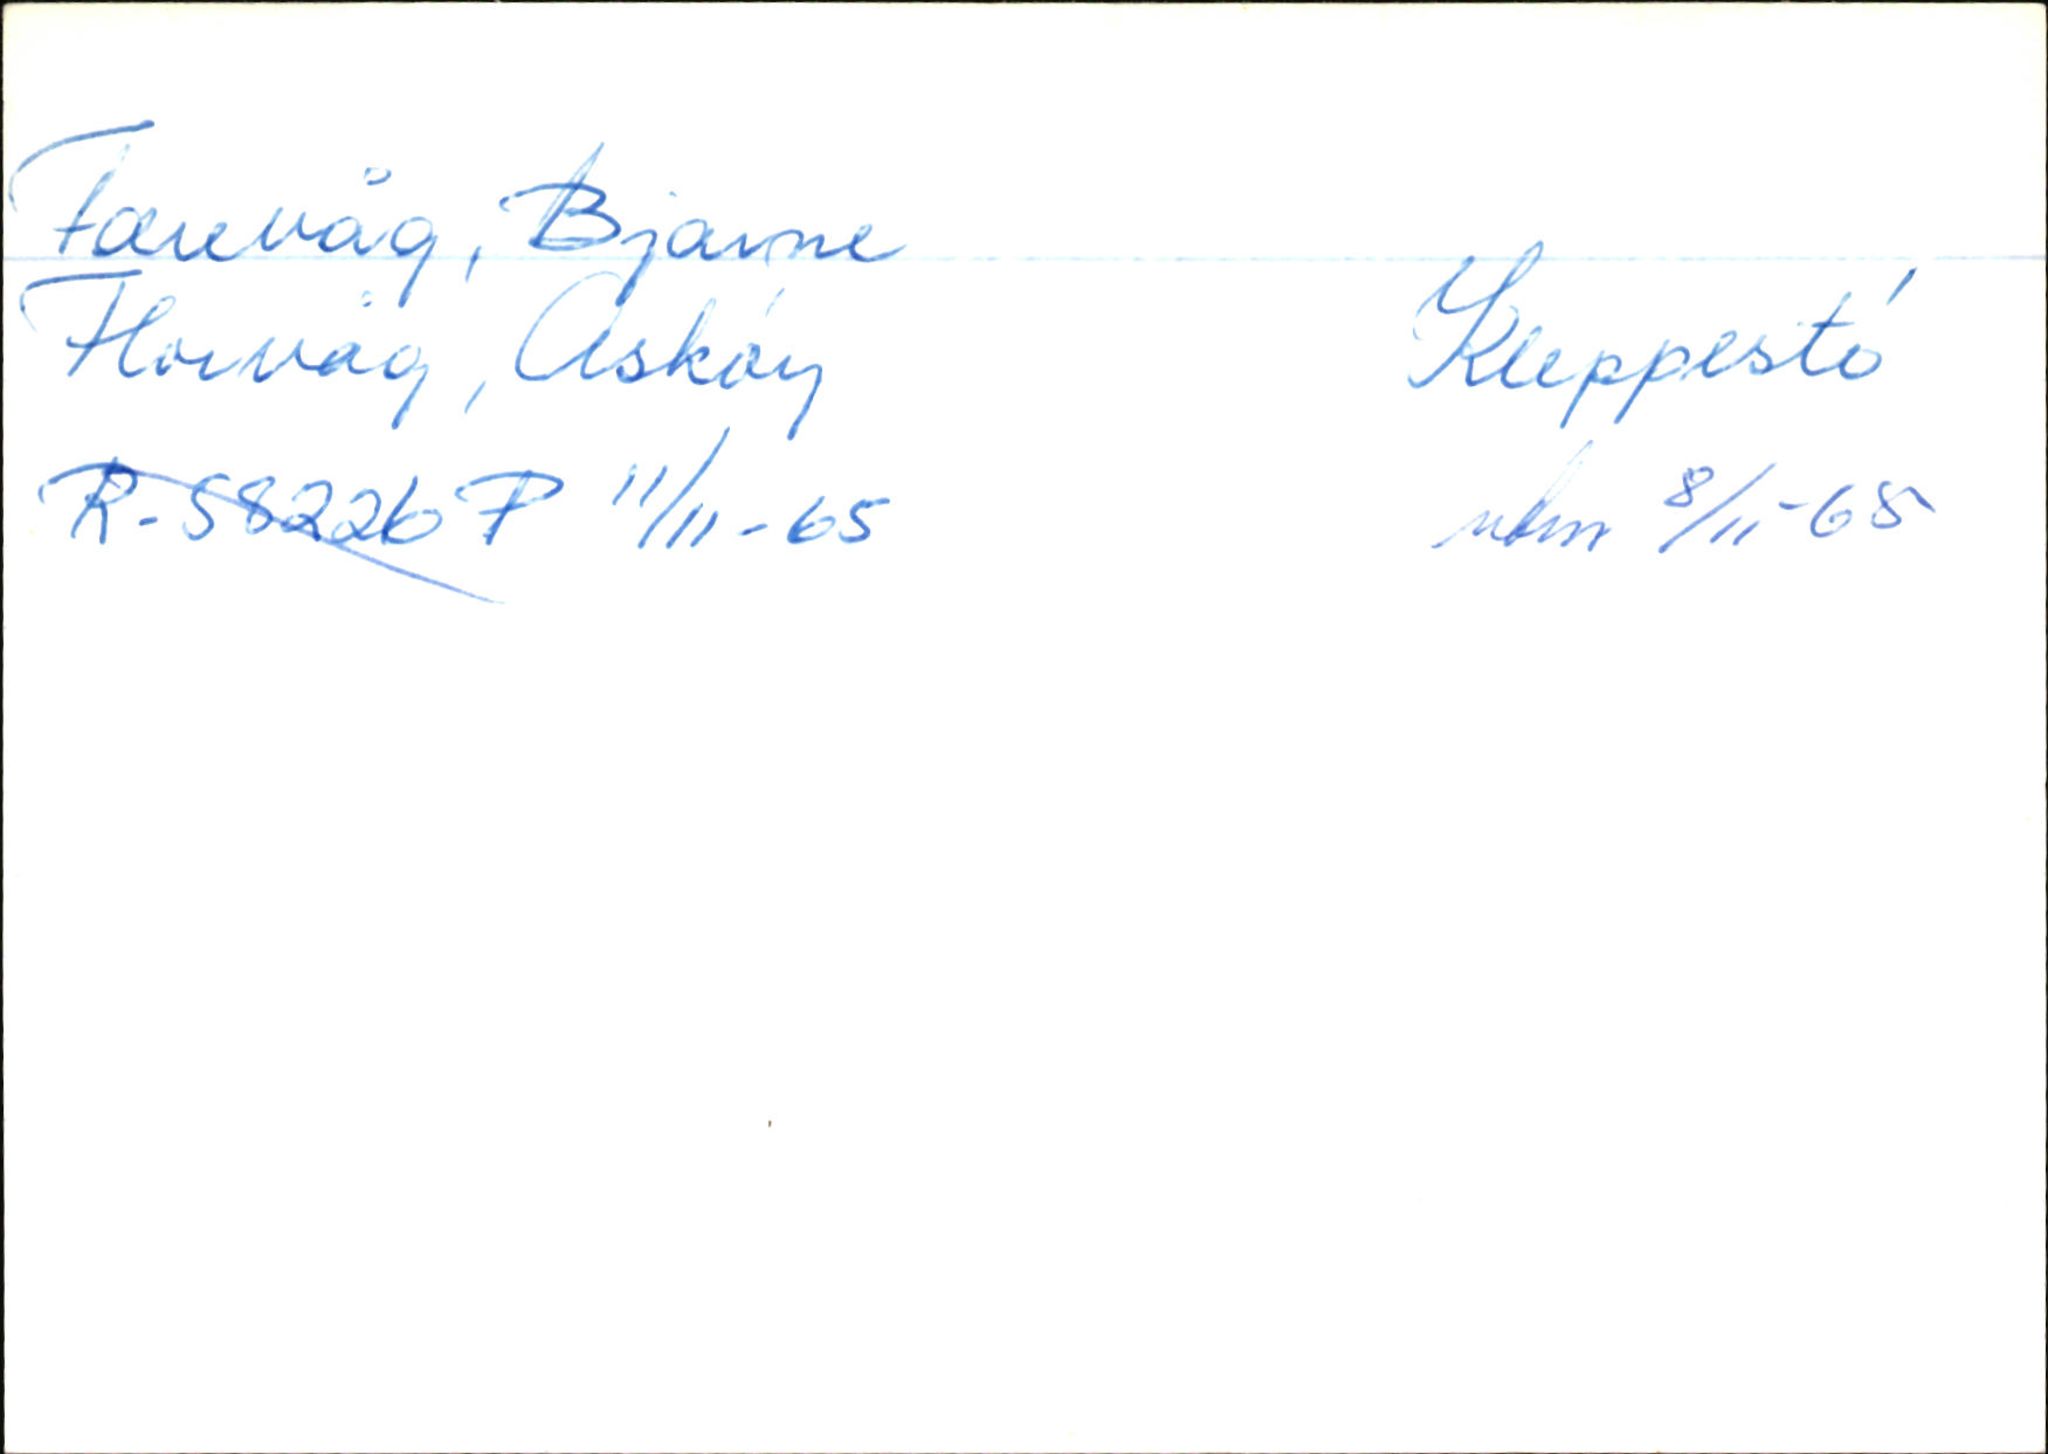 Færevåg, Bjarne
Florvåg, Askøy Kleppestø
R-58226 P 11/11-65 8/11-65